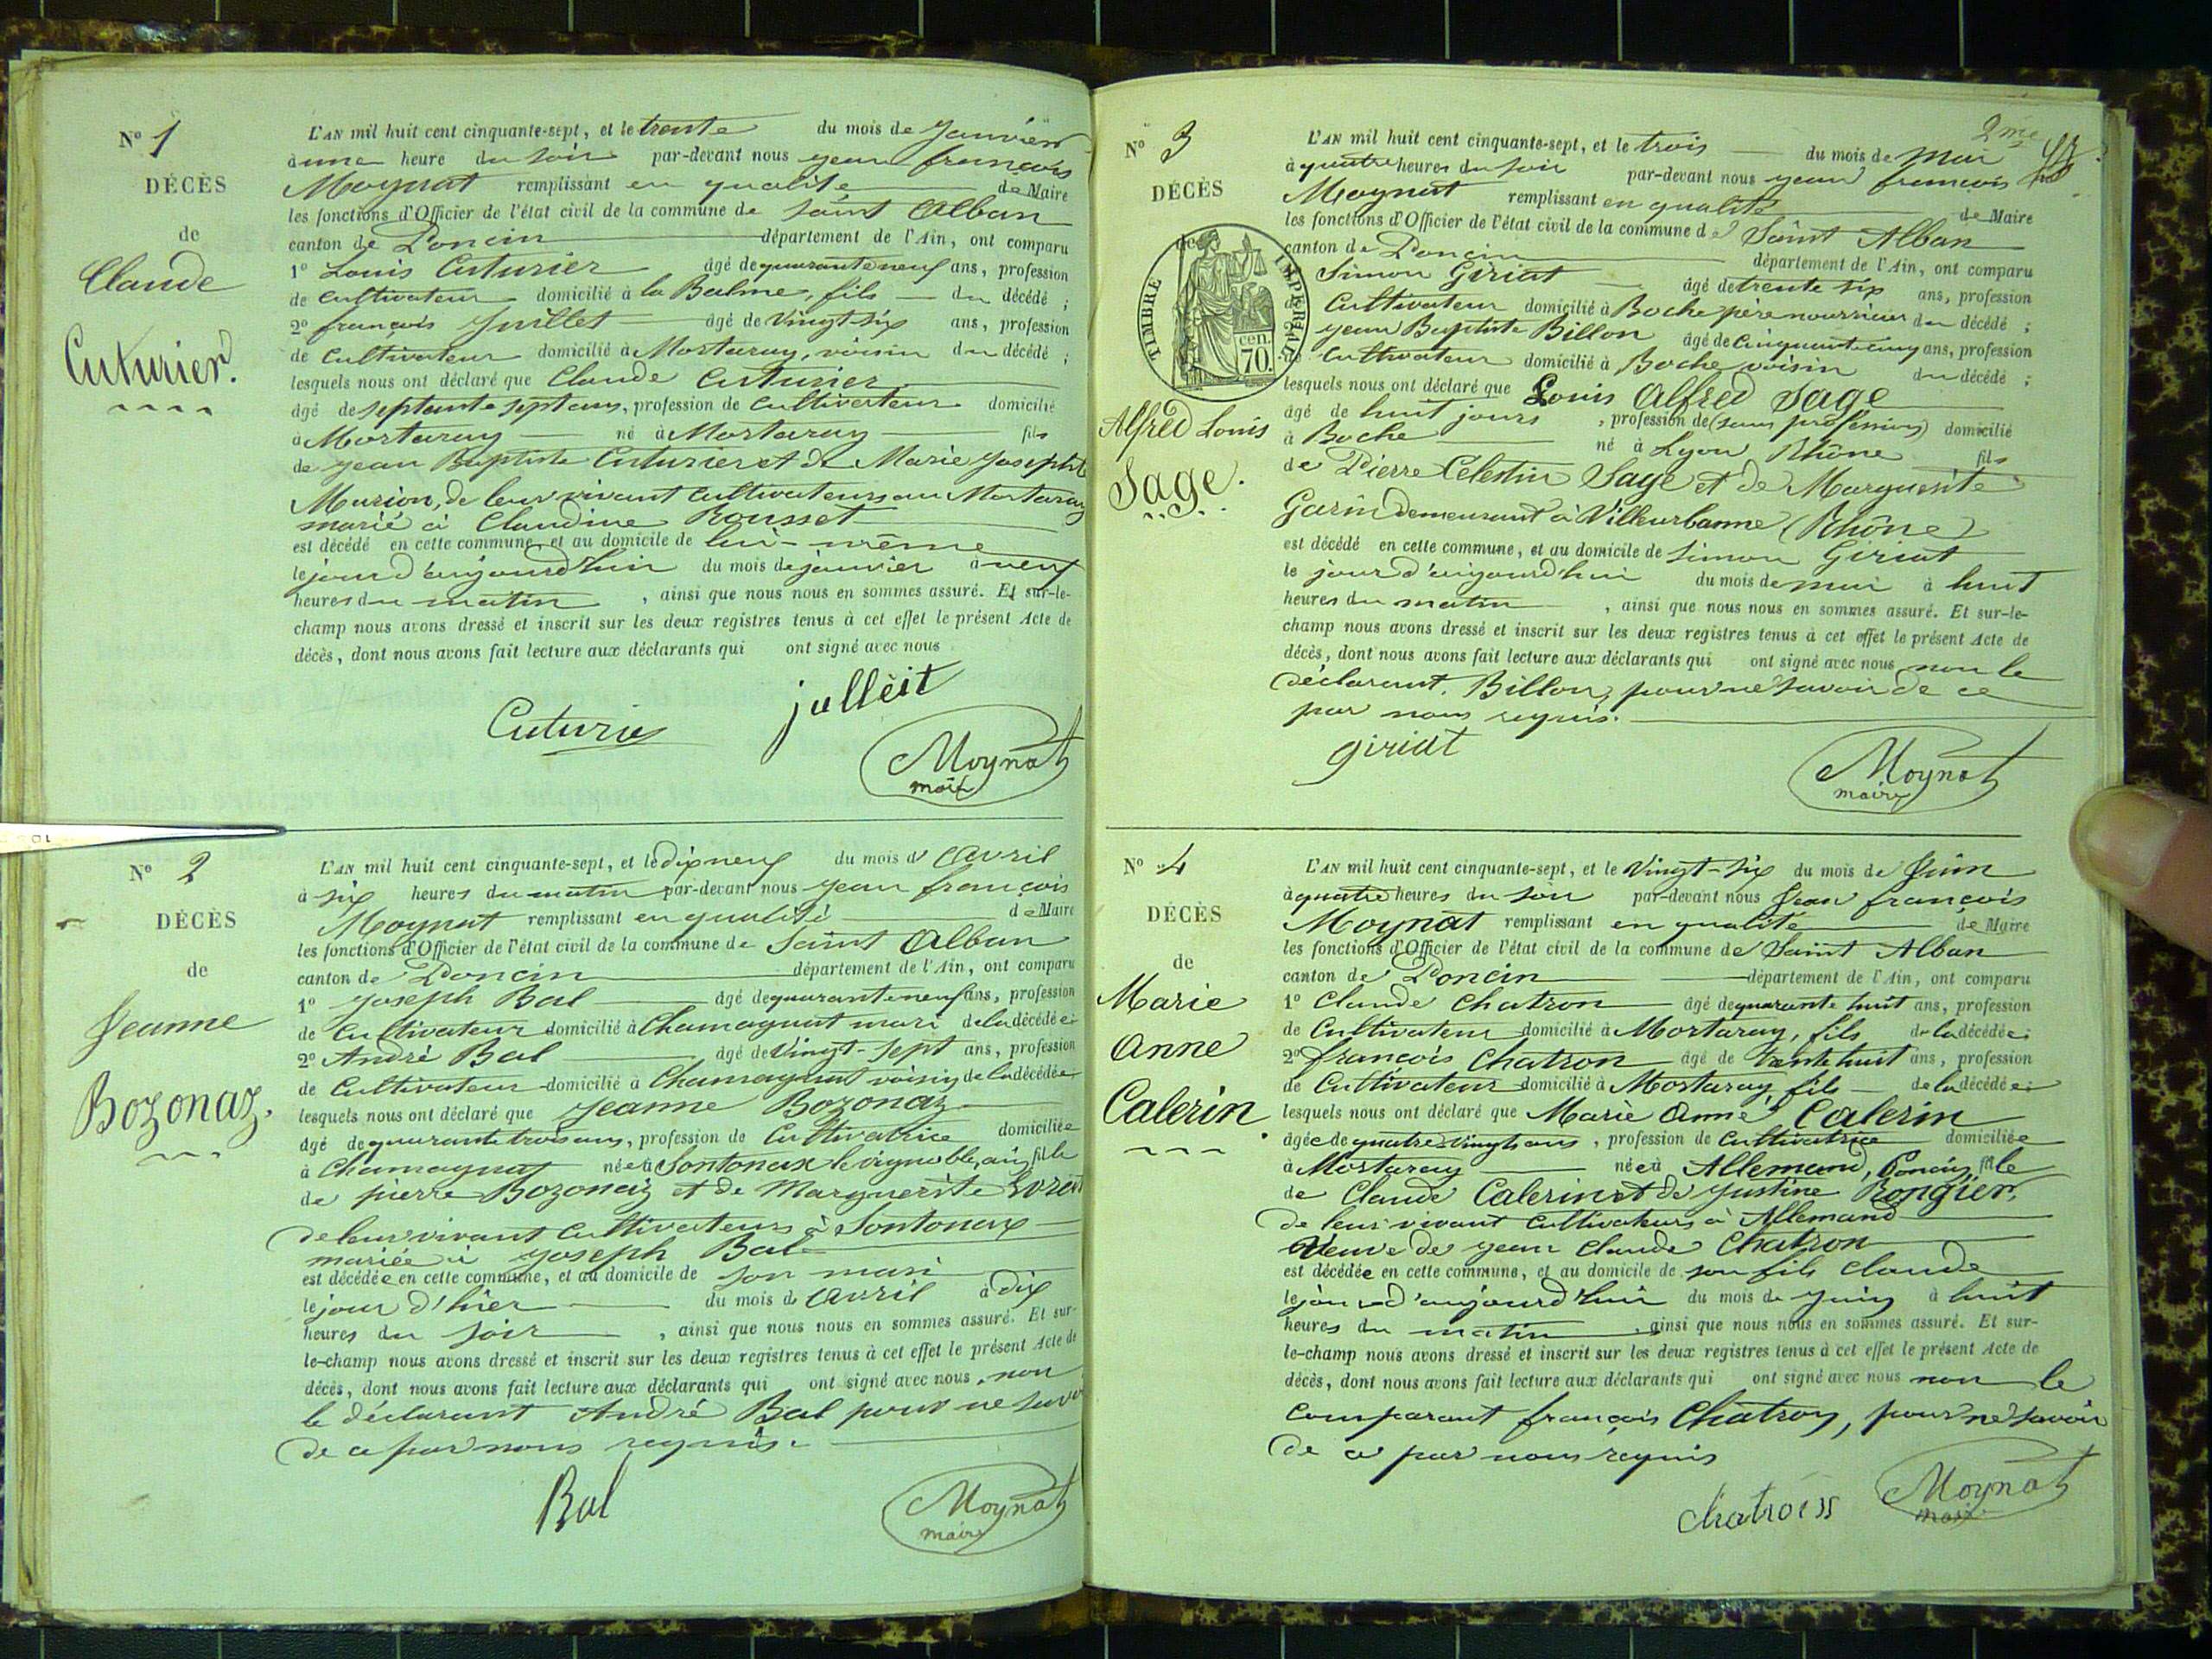 N° 1
DÉCÈS
de
Claude
Cuturier.
L'AN mil huit cent cinquante-sept, et le trente du mois de Janvier
à une heure du soir par-devant nous Jean françois
Moynat remplissant en qualité de Maire
les fonctions d'Officier de l'état civil de la commune de Saint Alban
canton de Poncin département de l'Ain, ont comparu
1° Louis Cuturier âgé de quarante neuf ans, profession
de Cultivateur domicilié à la Balme, fils du décédé ;
2° françois Juillet âgé de Vingt-six ans, profession
de Cultivateur domicilié à Mortaray, voisin du décédé ;
lesquels nous ont déclaré que Claude Cuturier
âgé de septante sept ans, profession de Cultivateur domicilié
à Mortaray né à Mortaray fils
de Jean Baptiste Cuturier et de Marie Josephte
Marion, de leur vivant Cultivateurs au Mortaray
marié à Claudine Rousset
est décédé en cette commune, et au domicile de lui-même
le jour d'aujourd'hui du mois de janvier à neuf
heures du matin, ainsi que nous nous en sommes assuré. Et sur-le-
champ nous avons dressé et inscrit sur les deux registres tenus à cet effet le présent Acte de
décès, dont nous avons fait lecture aux déclarants qui ont signé avec nous
Cuturier julleit
Moynat
maire
N° 2
DÉCÈS
de
Jeanne
Bozonaz.
L'AN mil huit cent cinquante-sept, et le dix neuf du mois d'Avril
à six heures du matin par-devant nous Jean françois
Moynat remplissant en qualité de Maire
les fonctions d'Officier de l'état civil de la commune de Saint Alban
canton de Poncin département de l'Ain, ont comparu
1° Joseph Bal âgé de quarante neuf ans, profession
de Cultivateur domicilié à Chamagnat mari de la décédée ;
2° André Bal âgé de Vingt-sept ans, profession
de Cultivateur domicilié à Chamagnat voisin de la décédée
lesquels nous ont déclaré que Jeanne Bozonaz
âgé de quarante trois ans, profession de Cultivatrice domiciliée
à Chamagnat née à Sontonax le vignoble, ain, fille
de pierre Bozonaz et de Marguerite
de leur vivant Cultivateurs à Sontonax
mariée à Joseph Bal
est décédée en cette commune, et au domicile de son mari
le jour d'hier du mois d'Avril à dix
heures du soir, ainsi que nous nous en sommes assuré. Et sur-
le-champ nous avons dressé et inscrit sur les deux registres tenus à cet effet le présent Acte de
décès, dont nous avons fait lecture aux déclarants qui ont signé avec nous, non
le déclarant André Bal pour ne savoir
de ce par nous requis.
Bal
Moynat
maire
2me
N° 3
DÉCÈS
de
TIMBRE IMPÉRIAL
70 cen.
Alfred Louis
Sage.
L'AN mil huit cent cinquante-sept, et le trois du mois de mai
à quatre heures du soir par-devant nous Jean francois
Moynat remplissant en qualité de Maire
les fonctions d'Officier de l'état civil de la commune de Saint Alban
canton de Poncin département de l'Ain, ont comparu
Simon Giriat âgé de trente six ans, profession
de Cultivateur domicilié à Boche père nourricier du décédé ;
Jean Baptiste Billon âgé de Cinquante cinq ans, profession
de Cultivateur domicilié à Boche voisin du décédé ;
lesquels nous ont déclaré que Louis Alfred Sage
âgé de huit jours, profession de (sans profession) domicilié
à Boche né à Lyon Rhône fils
de Pierre Celestin Sage et de Marguerite
Garin demeurant à Villeurbanne (Rhône)
est décédé en cette commune, et au domicile de Simon Giriat
le jour d'aujourd'hui du mois de mai à huit
heures du matin, ainsi que nous nous en sommes assuré. Et sur-le-
champ nous avons dressé et inscrit sur les deux registres tenus à cet effet le présent Acte de
décès, dont nous avons fait lecture aux déclarants qui ont signé avec nous non le
déclarant Billon, pour ne savoir de ce
par nous requis.
giriat
Moynat
maire
N° 4
DÉCÈS
de
Marie
Anne
Calerin.
L'AN mil huit cent cinquante-sept, et le Vingt-six du mois de Juin
à quatre heures du soir par-devant nous Jean françois
Moynat remplissant en qualité de Maire
les fonctions d'Officier de l'état civil de la commune de Saint Alban
canton de Poncin département de l'Ain, ont comparu
1° Claude Chatron âgé de quarante huit ans, profession
de Cultivateur domicilié à Mortaray, fils de la décédée ;
2° françois Chatron âgé de trente huit ans, profession
de Cultivateur domicilié à Mortaray fils de la décédée ;
lesquels nous ont déclaré que Marie Anne Calerin
âgée de quatre vingts ans, profession de Cultivatrice domiciliée
à Mortaray née à Allemand, Poncin, fille
de Claude Calerin et de Justine Rongier,
de leur vivant Cultivateurs à Allemand
Veuve de Jean Claude Chatron
est décédée en cette commune, et au domicile de son fils Claude
le jour d'aujourd'hui du mois de Juin à huit
heures du matin, ainsi que nous nous en sommes assuré. Et sur-
le-champ nous avons dressé et inscrit sur les deux registres tenus à cet effet le présent Acte de
décès, dont nous avons fait lecture aux déclarants qui ont signé avec nous non le
Comparant françois Chatron, pour ne savoir
de ce par nous requis
Moynat
maire